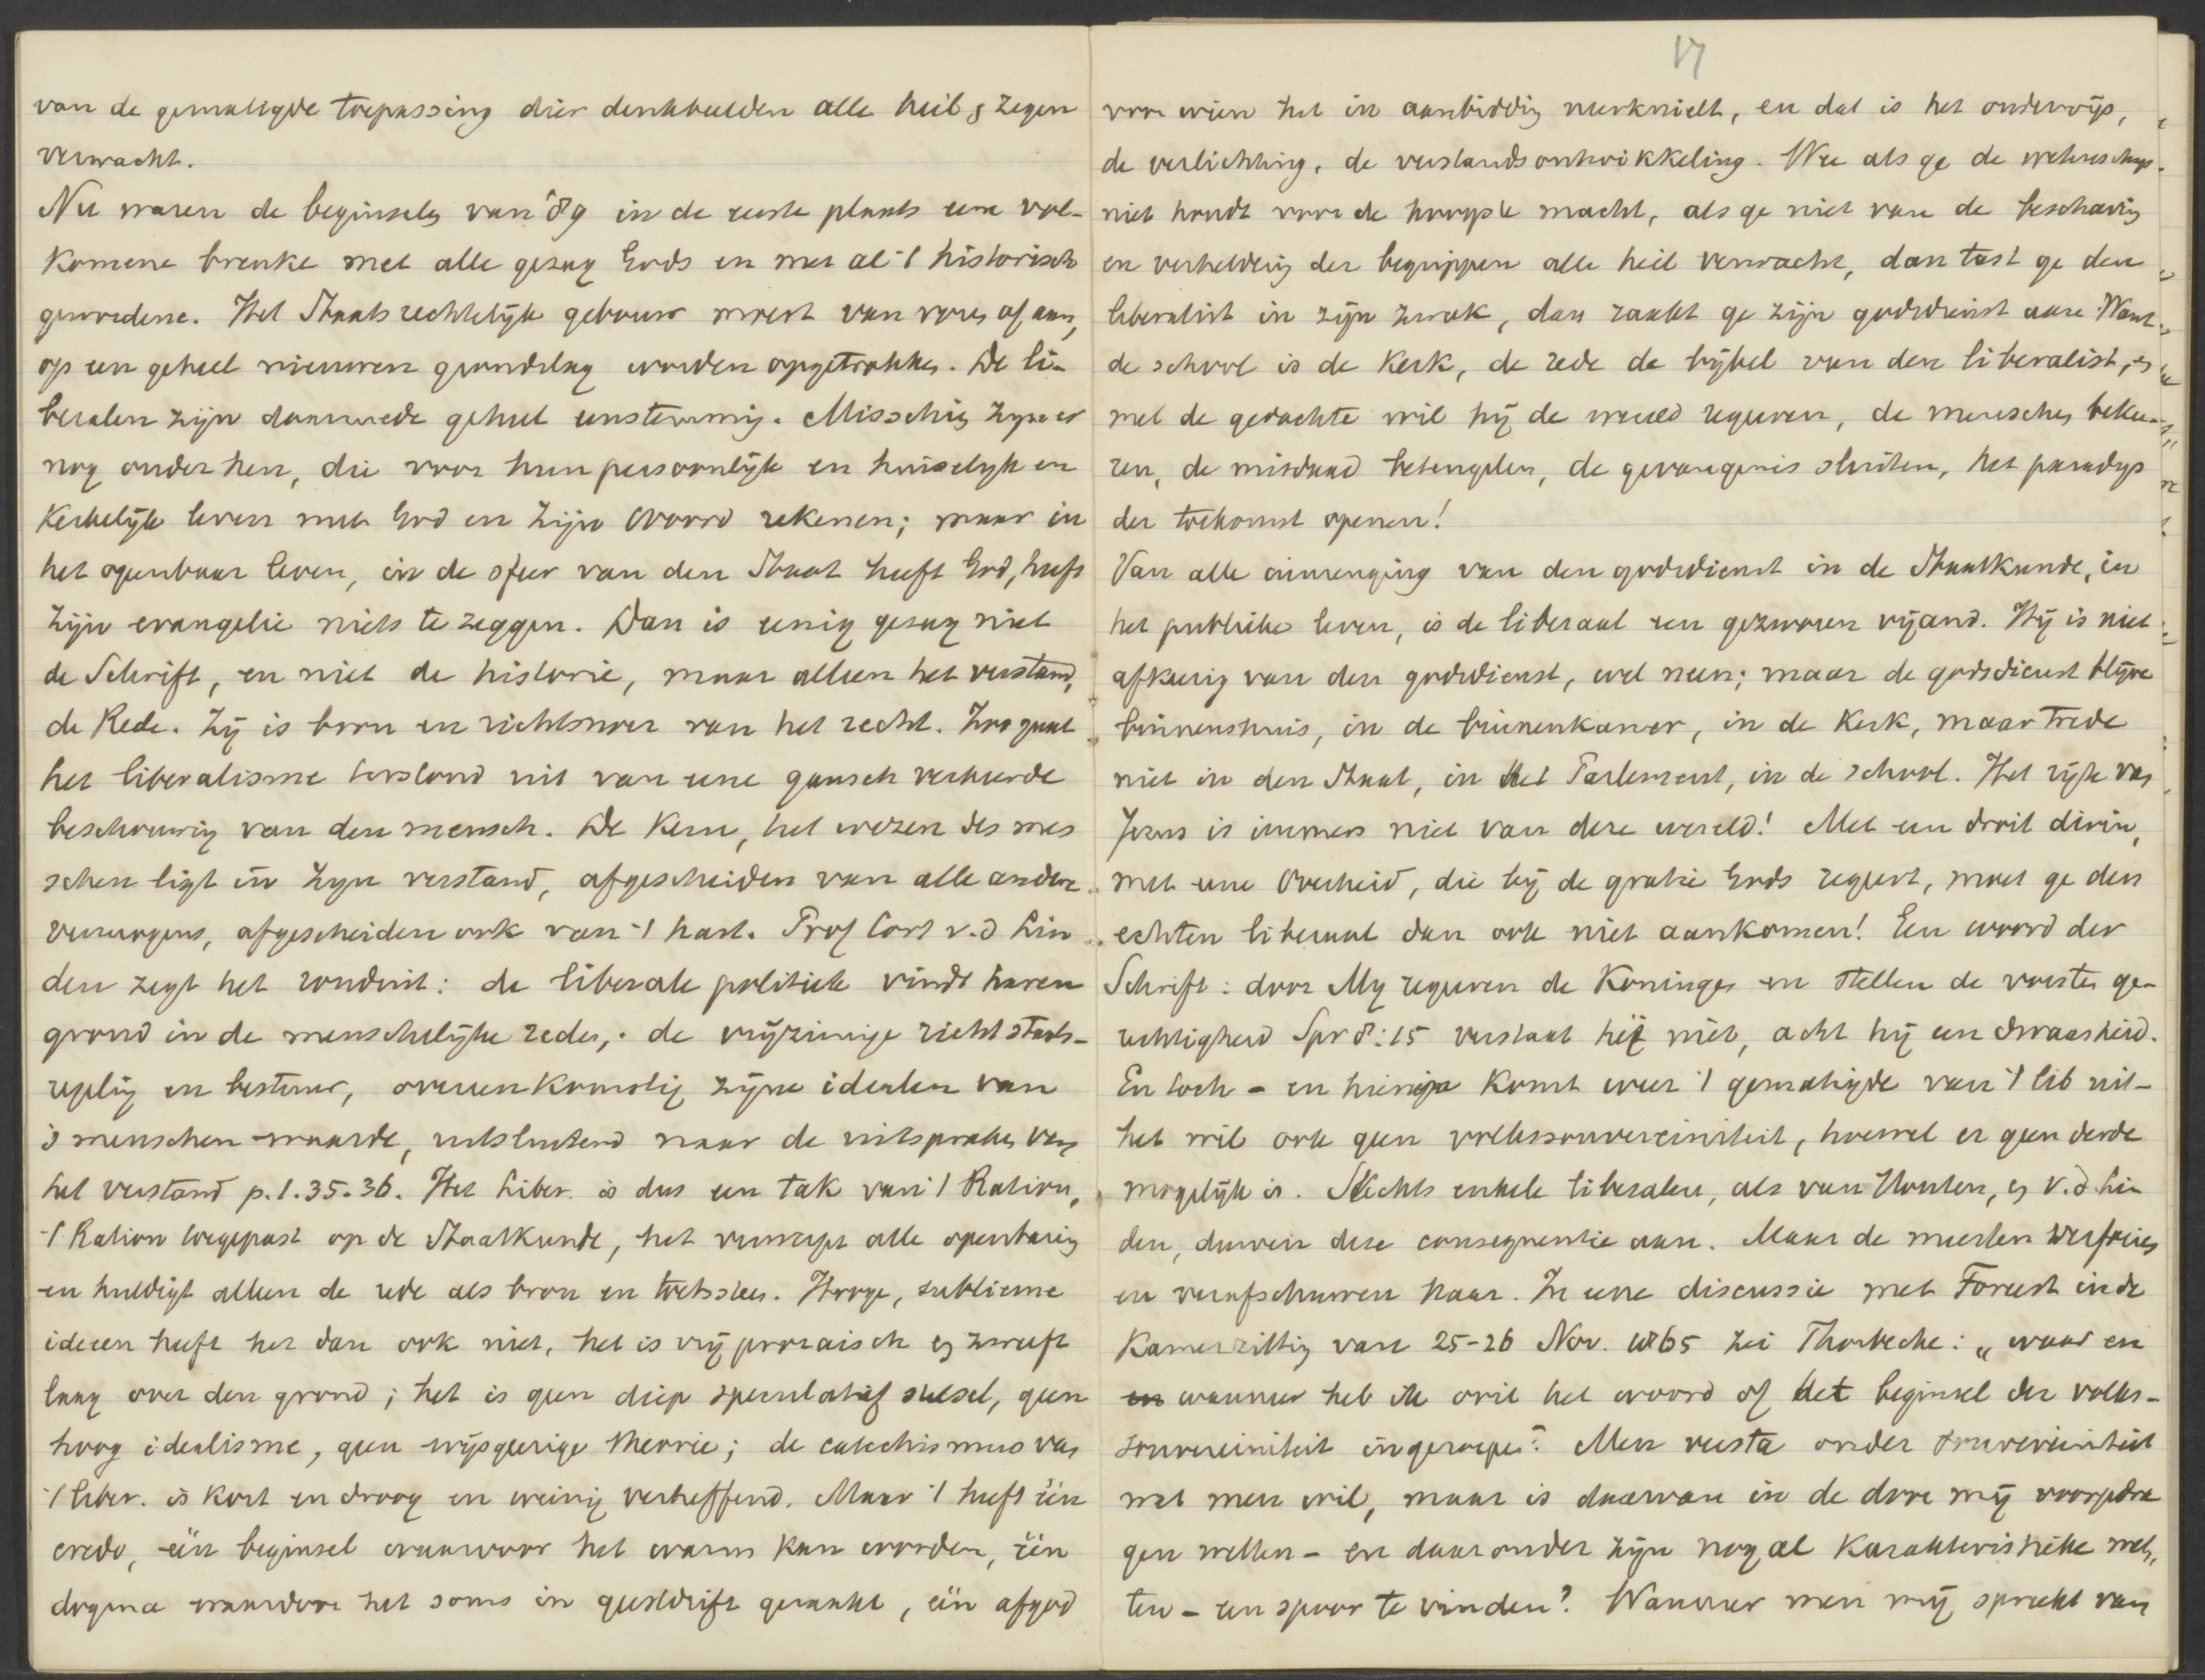 van de gematigde toepassing dier denkbeelden alle heil & zegen
verwacht.
Nu waren de beginselen van '89 in de eerste plaats eene vol-
komene breuke met alle gezag Gods en met al 't historisch
gewordene. Het Staatsrechtelijk gebouw moest van voren af aan,
op een geheel nieuwen grondslag worden opgetrokken. De li-
beralen zijn daarmede geheel eenstemmig. Misschien zijn er
nog onder hen, die voor hun persoonlijk en huiselijk en
Kerkelijk leven met God en zijn Woord rekenen; maar in
het openbaar leven, in de sfeer van den Staat heeft God, heeft
zijn evangelie niets te zeggen. Dan is eenig gezag niet
de Schrift, en niet de historie, maar alleen het verstand,
de Rede. Zij is bron en richtsnoer van het recht. Zoo gaat
het liberalisme terstond uit van eene gansch verkeerde
beschouwing van den mensch. De Kern, het wezen des men
schen ligt in zijn verstand, afgescheiden van alle andere
vermogens, afgescheiden ook van 't hart. Prof Cort v.d Lin
den zegt het ronduit: de liberale politiek vindt haren
grond in de menschelijke rede, de vrijzinnige richt staats-
regeling en bestuur, overeenkomstig zijne idealen van
's menschen waarde, uitsluitend naar de uitspraken van
het verstand p. 1. 35. 36. Het Liber. is dus een tak van 't Ration,
't Ration toegepast op de Staatkunde, het verwerpt alle openbaring
en huldigt alleen de rede als bron en toetssteen. Hooge, sublieme
ideeen heeft het dan ook niet, het is vrij prozaisch en zweeft
laag over den grond; het is geen diep speculatief stelsel, geen
hoog idealisme, geen wijsgeerige theorie; de catechismus van
't liber. is kort en droog en weinig verheffend. Maar 't heeft één
credo, één beginsel waarvoor het warm kan worden, één
dogma waardoor het soms in geestdrift geraakt, één afgod
17
voor wien het in aanbidding neerknielt, en dat is het onderwijs,
de verlichting, de verstandsontwikkeling. Wee als ge de wetenschap
niet houdt voor de hoogste macht, als ge niet van de beschaving
en verheldering der begrippen alle heil verwacht, dan tast ge den
liberalist in zijn zwak, dan raakt ge zijn godsdienst aan. Want
de school is de Kerk, de rede de bijbel van den liberalist, en
met de gedachte wil hij de wereld regeeren, de menschen bekee-
ren, de misdaad beteugelen, de gevangenis sluiten, het paradijs
der toekomst openen!
Van alle inmenging van den godsdienst in de Staatkunde, in
het publieke leven, is de liberaal een gezworen vijand. Hij is niet
afkeerig van den godsdienst, wel neen; maar de godsdienst blijve
binnenshuis, in de binnenkamer, in de Kerk, maar trede
niet in den Staat, in het Parlement, in de school. Het rijk van
Jezus is immers niet van deze wereld! Met een droit divin,
met eene Overheid, die bij de gratie Gods regeert, moet ge den
echten liberaal dan ook niet aankomen! Een woord der
Schrift: door Mij regeeren de Koningen en stellen de vorsten ge-
rechtigheid Spr 8:15 verstaat hij niet, acht hij een dwaasheid.
En toch - en hierin komt weer 't gematigde van 't lib uit-
het wil ook geen volkssouvereiniteit, hoewel er geen derde
mogelijk is. Slechts enkele liberalen, als van Houten, en v.d Lin
den, durven deze consequentie aan. Maar de meesten verfoeien
en verafschuwen haar. In eene discussie met Foreest in de
Kamerzitting van 25-26 Nov. 1865 zei Thorbecke: „waar en
en wanneer heb ik ooit het woord of het beginsel der volks-
souvereiniteit ingeroepen? Men versta onder souvereiniteit
wat men wil, maar is daarvan in de door mij voorgedra
gen wetten - en daaronder zijn nog al karakteristieke wet,
ten - een spoor te vinden? Wanneer men mij spreekt van